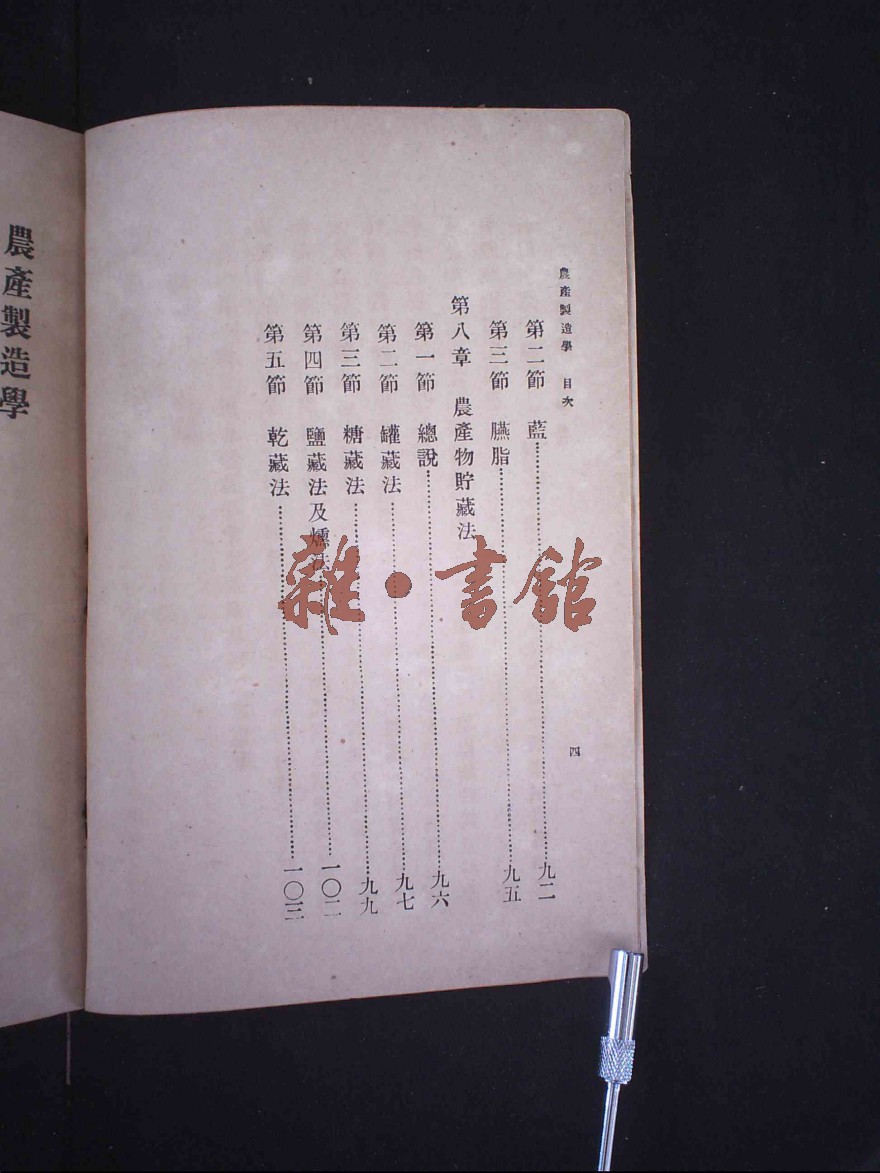 農產製造學 目次
四
第二節 藍……九二
第三節 臙脂……九五
第八章 農產物貯藏法
第一節 總說……九六
第二節 罐藏法……九七
第三節 糖藏法……九九
第四節 鹽藏法及燻法……一〇二
第五節 乾藏法……一〇三
農產製造學
雜·書館